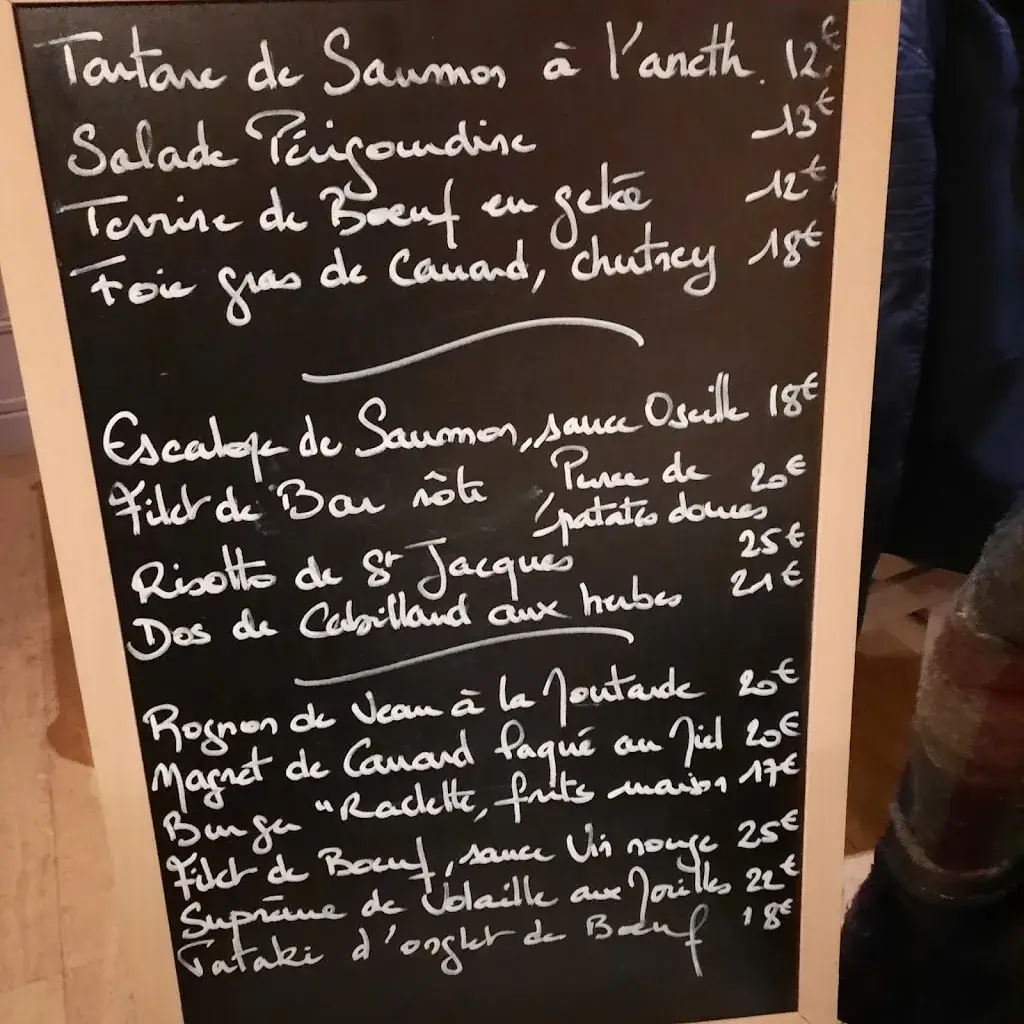 Tartare de Saumon à l'aneth. 12€
Salade Périgourdine 13€
Terrine de Boeuf en gelée 12€
Foie gras de Canard, chutney 18€
Escalope de Saumon, sauce Oseille 18€
Filet de Bar rôti, Purée de 20€
patates douces
Risotto de St Jacques 25€
Dos de Cabillaud aux herbes 21€
Rognon de Veau à la Moutarde 20€
Magret de Canard laqué au Miel 20€
Burger "Raclette, frites maison 17€
Filet de Boeuf, sauce Vin rouge 25€
Suprême de Volaille aux Morilles 22€
Tataki d'onglet de Boeuf 18€